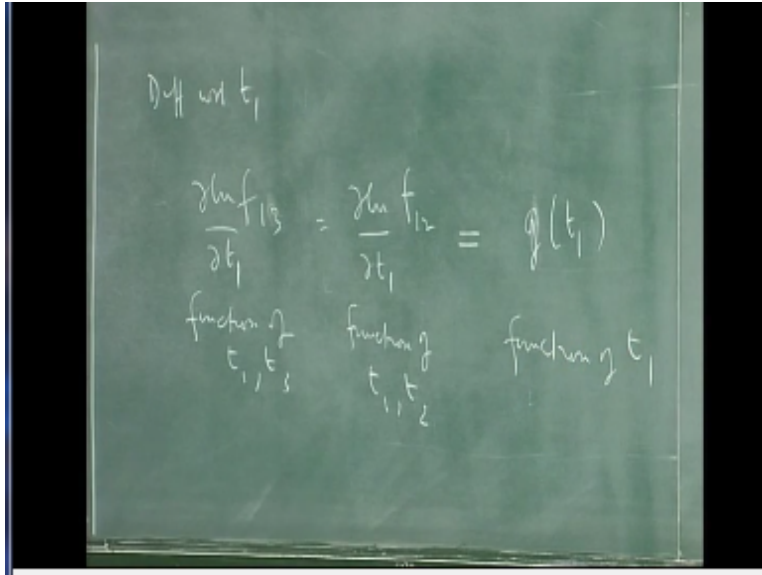 Diff wrt t₁
∂ln f₁₃ / ∂t₁ = ∂ln f₁₂ / ∂t₁ = g(t₁)
function of t₁, t₃ function of t₁, t₂ function of t₁